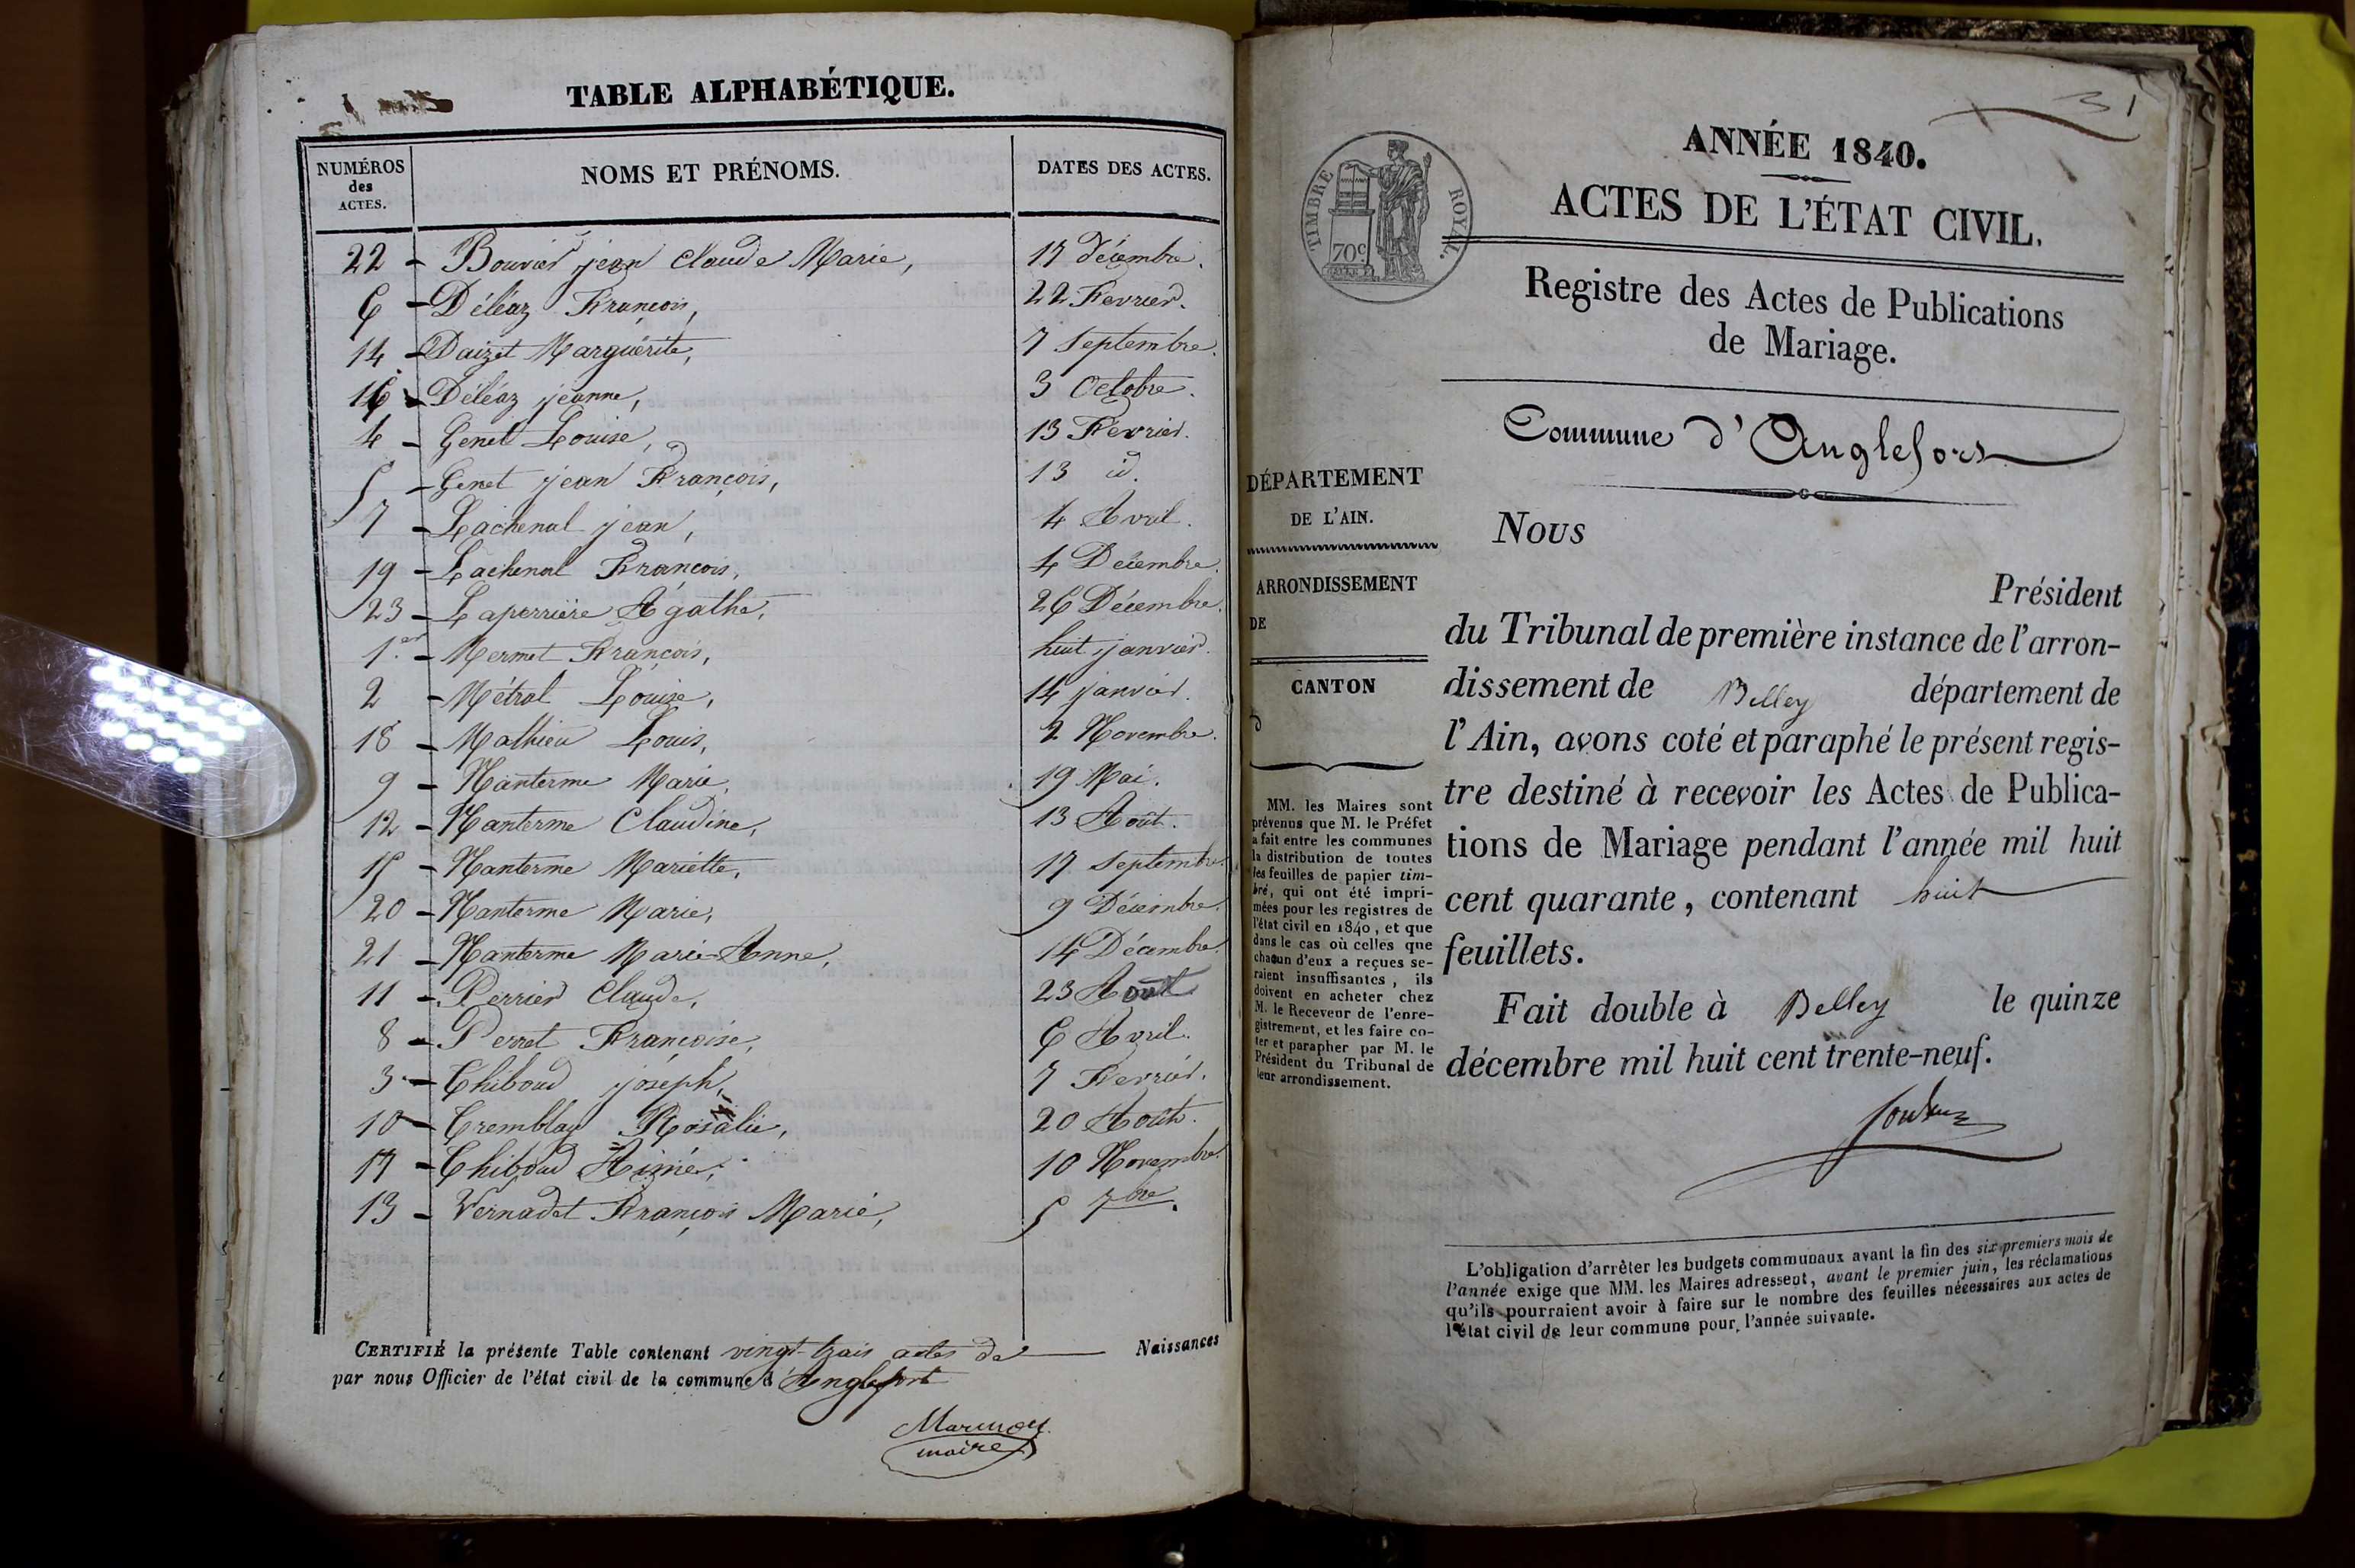 TABLE ALPHABÉTIQUE.
NUMÉROS des ACTES. NOMS ET PRÉNOMS. DATES DES ACTES.
22 - Bouvier jean Claude Marie, 17 décembre.
6 - Déléaz François, 22 Fevrier.
14 - Daizet Marguérite, 7 Septembre.
16 - Déléaz jeanne, 3 Octobre.
4 - Genet Louise, 13 Fevrier.
5 - Genet jean François, 13 id.
7 - Lachenal jean, 4 Avril.
19 - Lachenal François, 4 Décembre.
23 - Laperrière Agathe, 26 Décembre.
1.er - Mermet François, huit janvier.
2 - Métral Louise, 14 janvier.
18 - Mathieu Louis, 2 Novembre.
9 - Nanterme Marie, 19 Mai.
12 - Nanterme Claudine, 13 Août.
15 - Nanterme Mariette, 17 Septembre.
20 - Nanterme Marie, 9 Décembre.
21 - Nanterme Marie-Anne, 14 Décembre.
11 - Perrier Claude, 23 Août
8 - Perret Françoise, 6 Avril.
3 - Thiboud joseph, 7 Fevrier.
10 - Tremblay Rosalie, 20 Août.
17 - Thiboud Aimé, 10 Novembre.
13 - Vernadet François Marie, 5 7bre.
CERTIFIÉ la présente Table contenant vingt-trois actes de Naissances
par nous Officier de l'état civil de la commune d'Anglefort
maire
31
TIMBRE ROYAL.
70c
ANNÉE 1840.
ACTES DE L'ÉTAT CIVIL.
Registre des Actes de Publications
de Mariage.
Commune d'Anglefort
DÉPARTEMENT
DE L'AIN.
ARRONDISSEMENT
DE
CANTON
d
MM. les Maires sont
prévenus que M. le Préfet
a fait entre les communes
la distribution de toutes
les feuilles de papier tim-
bré, qui ont été impri-
mées pour les registres de
l'état civil en 1840, et que
dans le cas où celles que
chacun d'eux a reçues se-
raient insuffisantes, ils
doivent en acheter chez
M. le Receveur de l'enre-
gistrement, et les faire co-
ter et parapher par M. le
Président du Tribunal de
leur arrondissement.
Nous
Président
du Tribunal de première instance de l'arron-
dissement de Belley département de
l'Ain, avons coté et paraphé le présent regis-
tre destiné à recevoir les Actes de Publica-
tions de Mariage pendant l'année mil huit
cent quarante, contenant huit
feuillets.
Fait double à Belley le quinze
décembre mil huit cent trente-neuf.
L'obligation d'arrêter les budgets communaux avant la fin des six premiers mois de
l'année exige que MM. les Maires adressent, avant le premier juin, les réclamations
qu'ils pourraient avoir à faire sur le nombre des feuilles nécessaires aux actes de
l'état civil de leur commune pour l'année suivante.